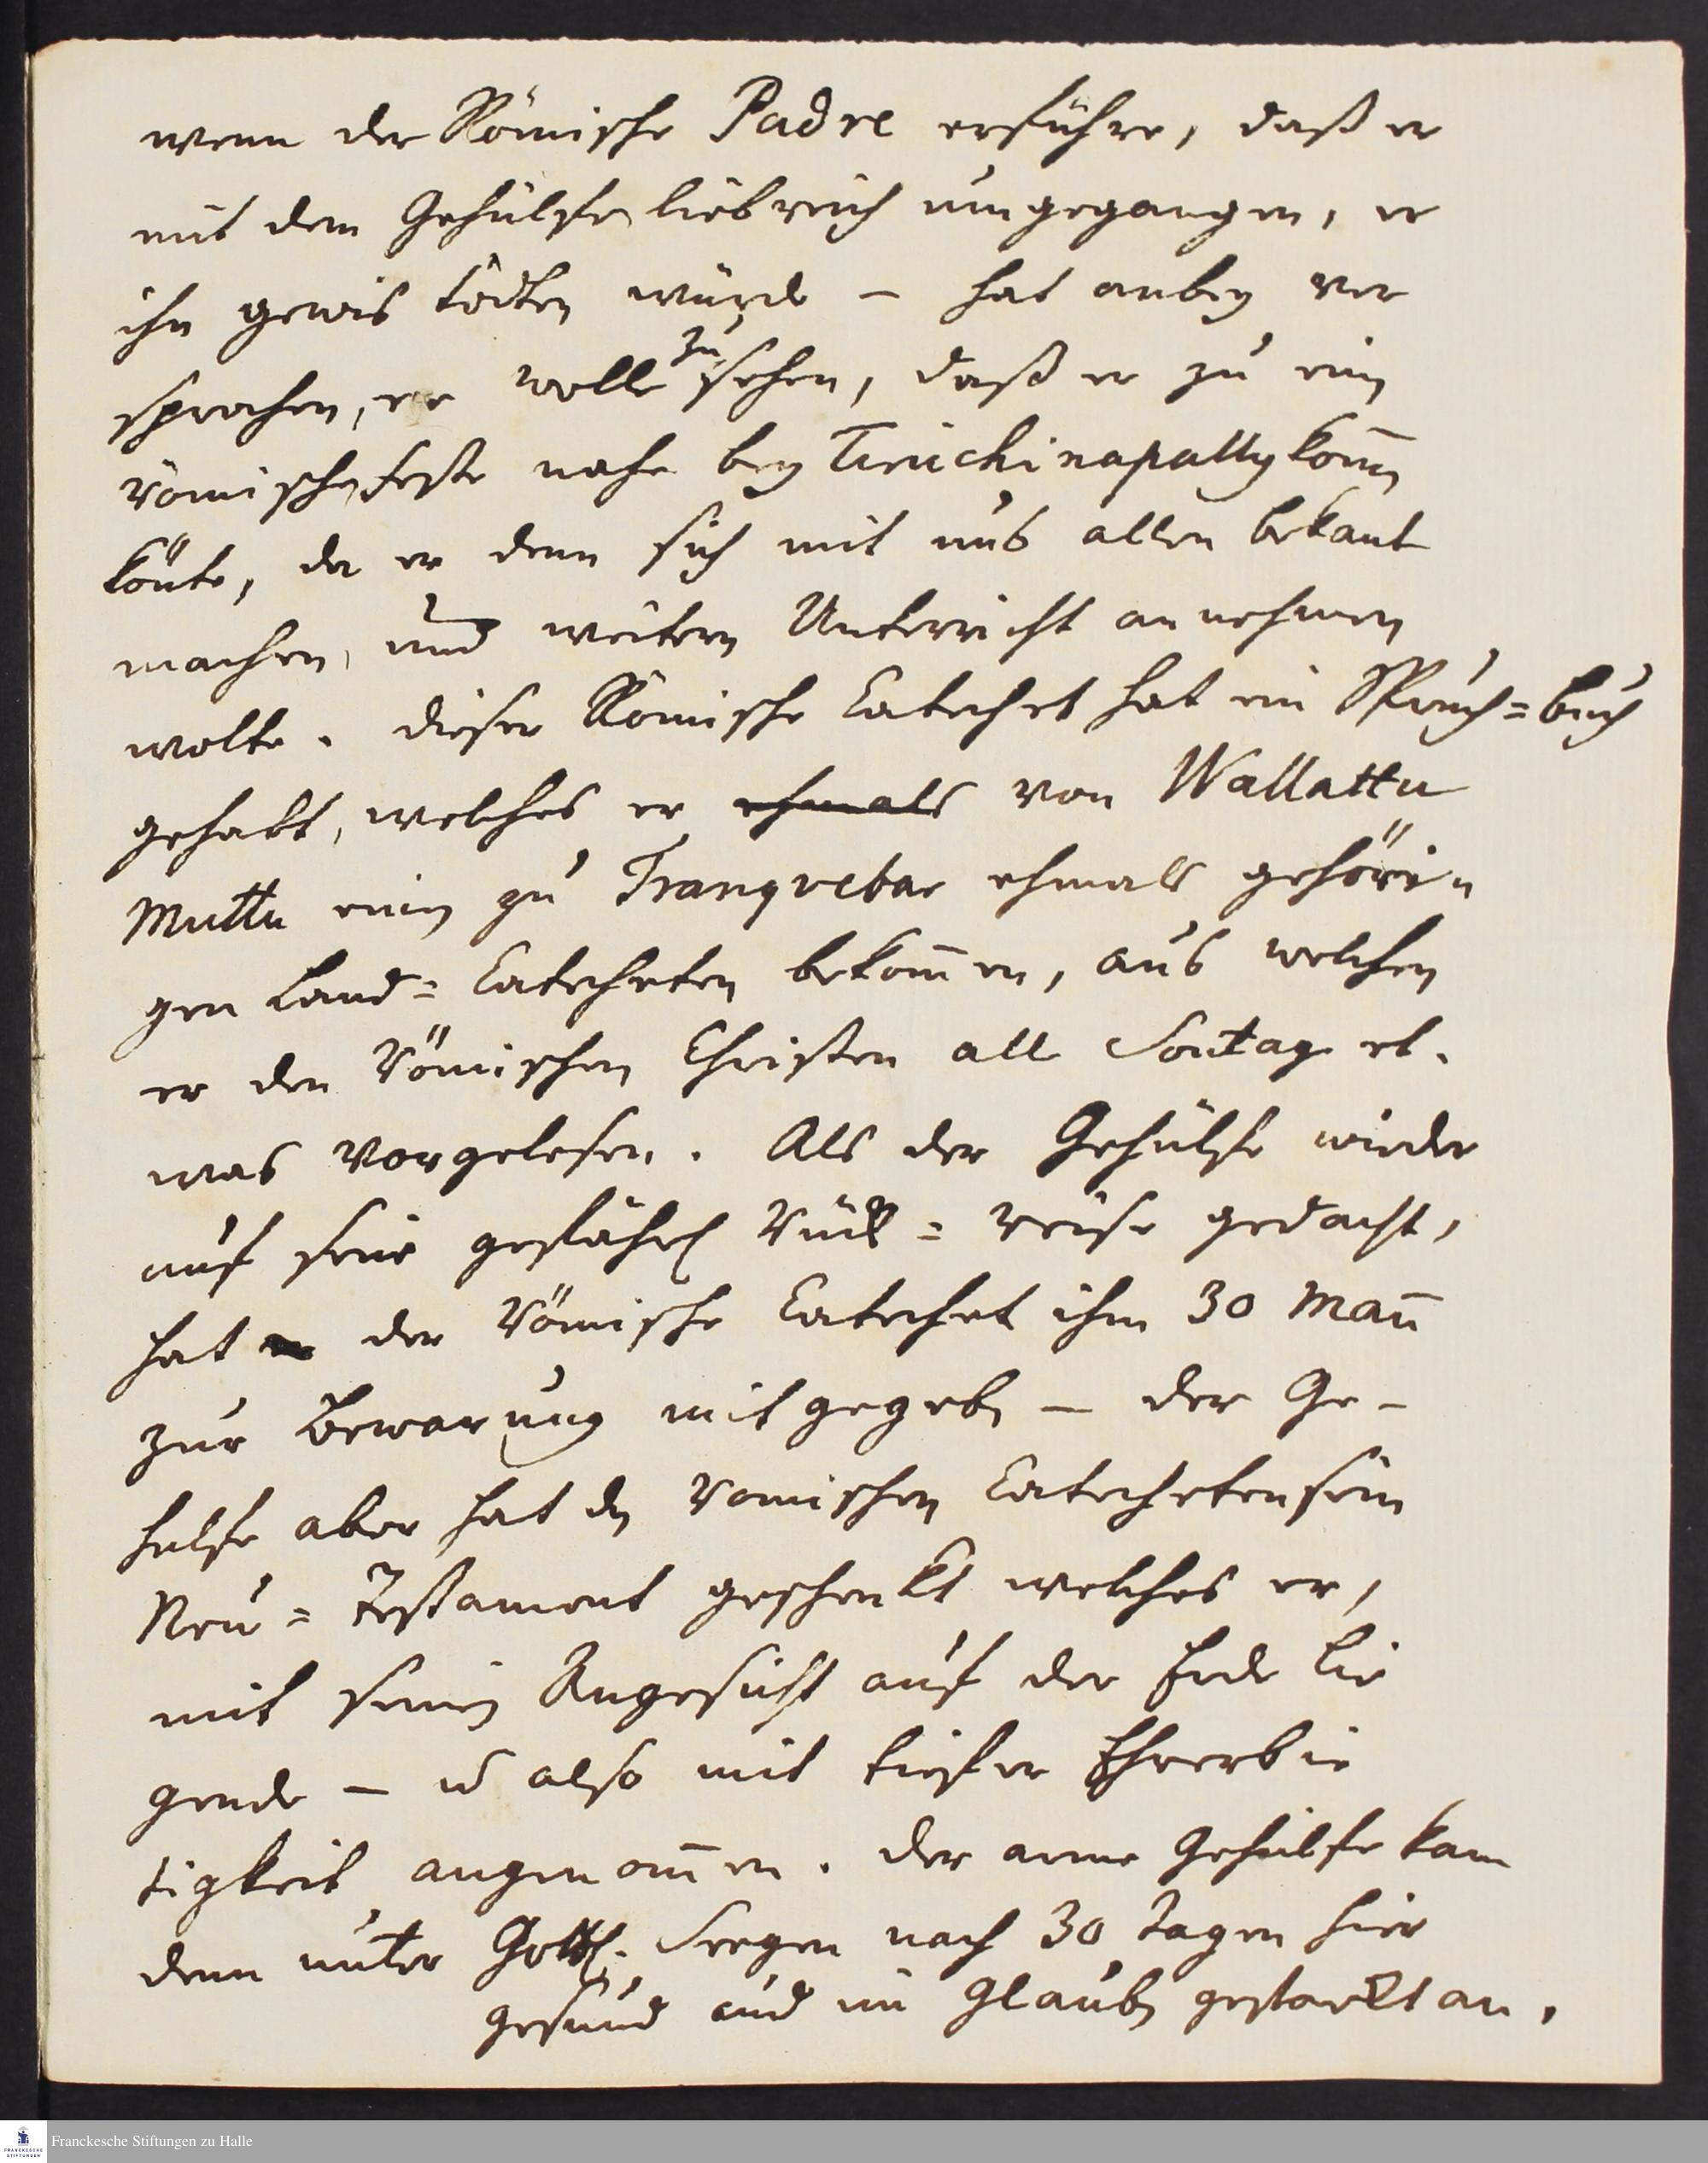 wenn der Römische Padre erführe, daß er
mit dem Gehülfen liebreich umgegangen, er
ihn gewis tödten würde – hat anbey ver
sprochen, er wolle zusehen, daß er zu einen
römischen Feste nahe bey Tiruchinapally kom̅en
kön̅te, da er denn sich mit uns allen bekant
machen, und weitern Unterricht annehmen
wolte. dieser Römische Catechet hat ein Spruch=buch
gehabt, welches er ehmals von Wallattu
Muttu einen zu Tranqvebar ehmals gehöri
gen Land=Catecheten bekom̅en, aus welchen
er den Römischen Christen alle Son̅tage et.
was vorgelesen. Als der Gehülfe wieder
auf seine gefährl Rück=reise gedacht,
hat der Römische Catechet ihm 30 Man̅
zur Bewarung mitgegeben – der Ge-
hulfe aber hat den Romischen Catecheten sein
Neu=Testament geschenkt welches er,
mit seinen Angesicht auf der Erde lie
gende – u also mit tiefer Ehrerbie
tigkeit angenom̅en. der arme Gehülfe kam
denn unter Göttl. Seegen nach 30 Tagen hier
gesund und im Glauben gestarkt an.
Franckesche Stiftungen zu Halle
FRANCKESCHE
STIFTUNGEN